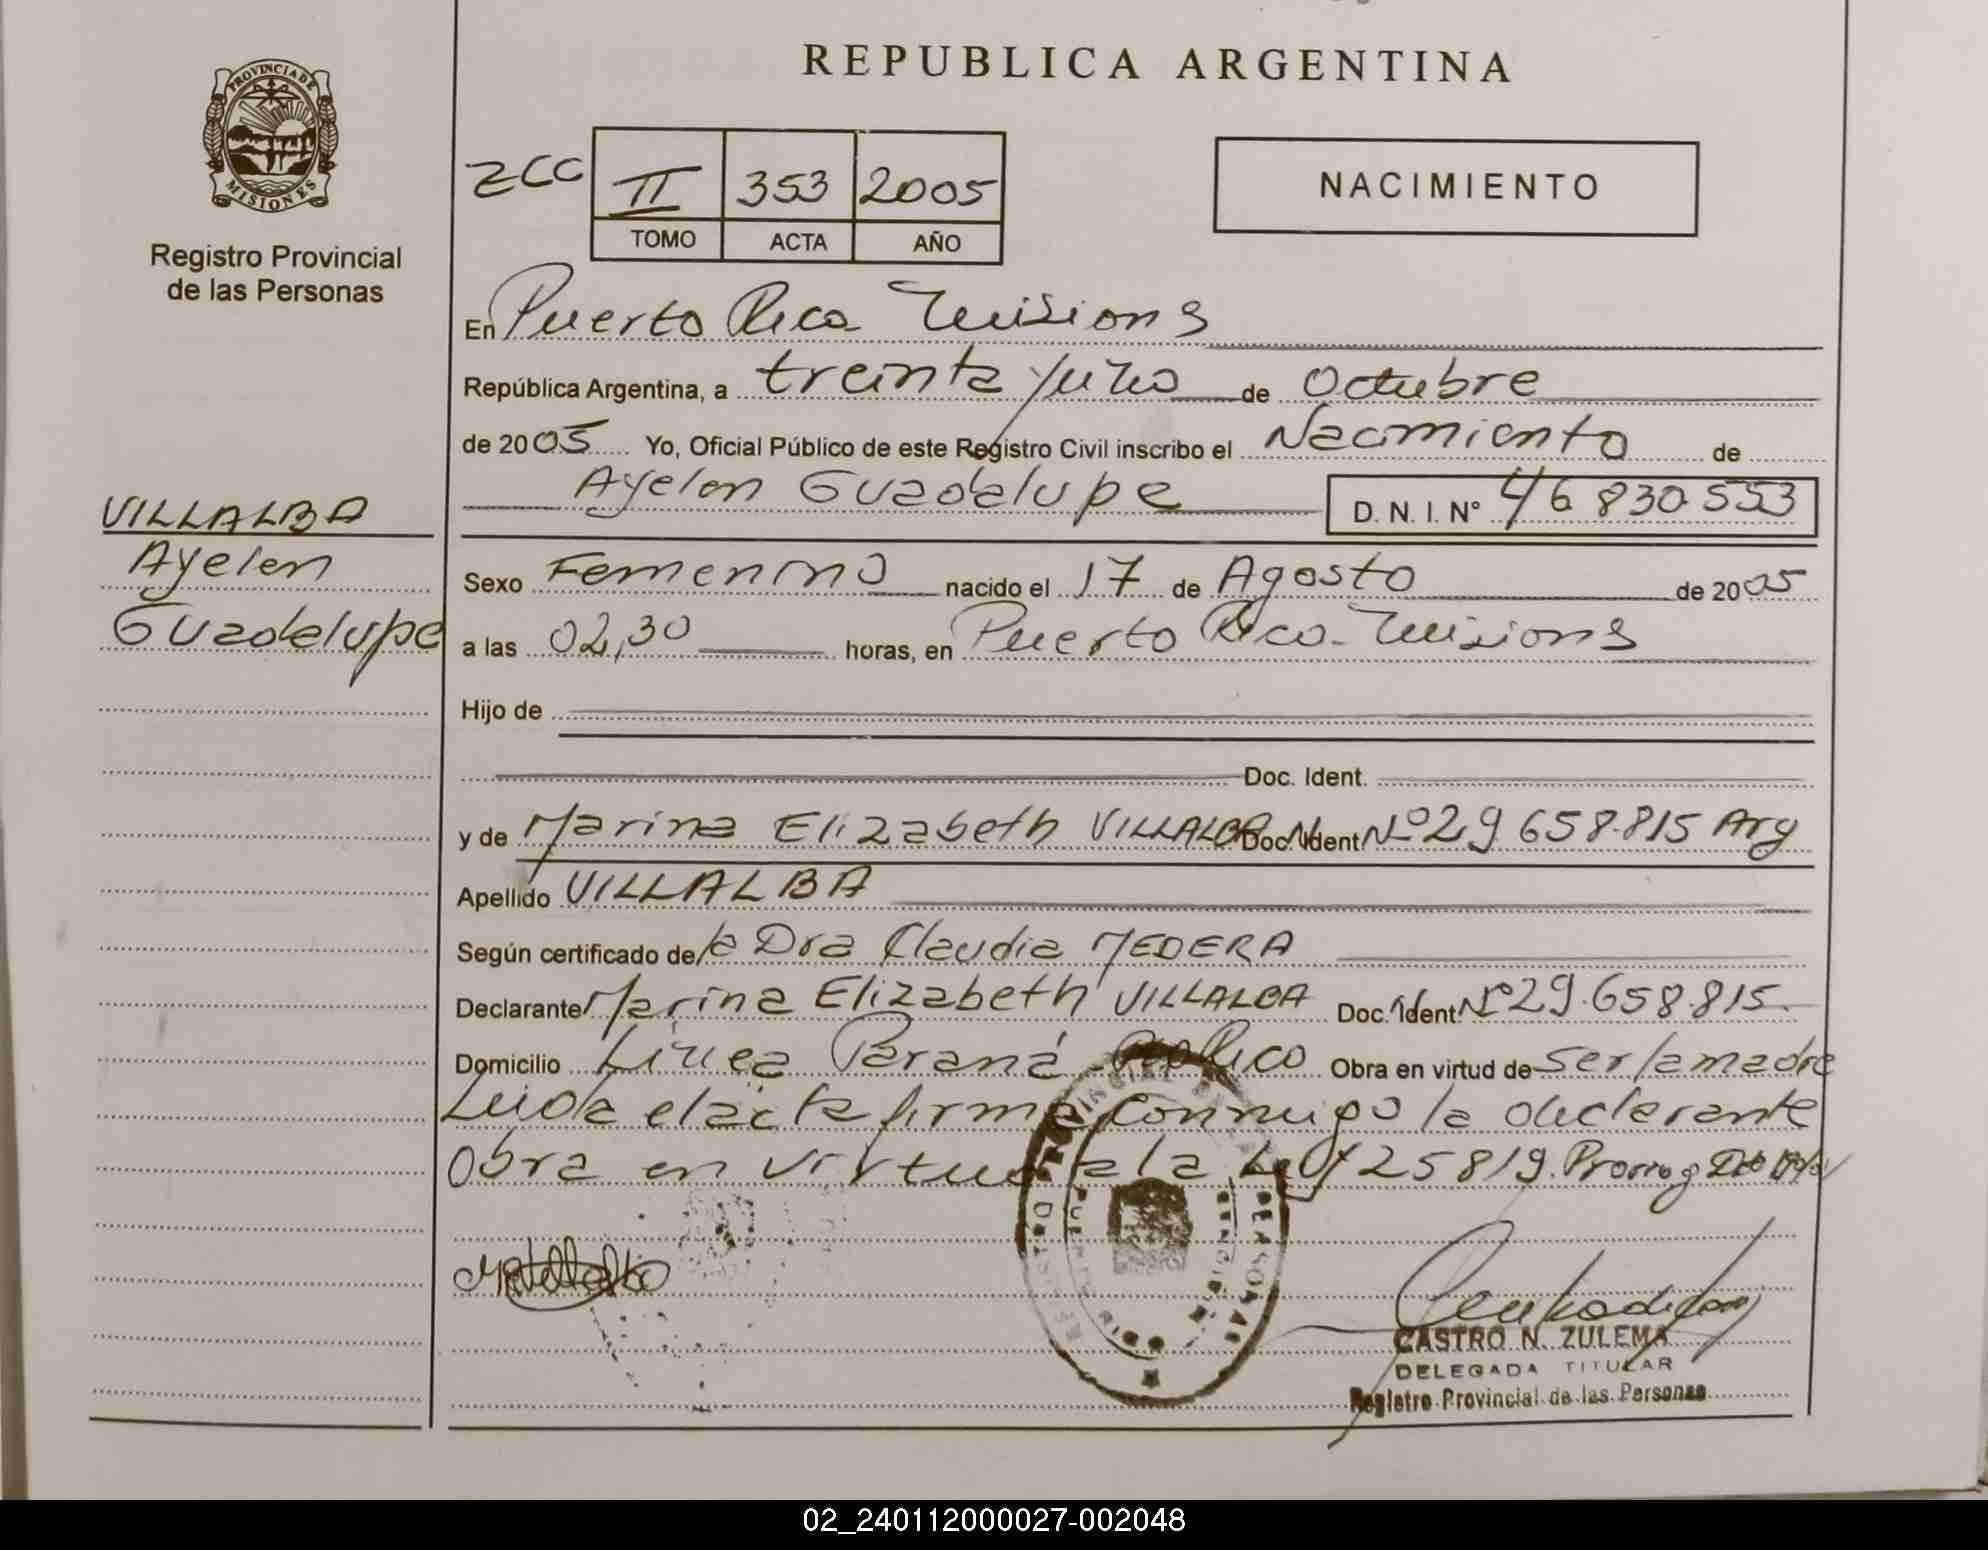 REPUBLICA ARGENTINA
PROVINCIA DE MISIONES
Registro Provincial
de las Personas
ZCC II 353 2005
TOMO ACTA AÑO
NACIMIENTO
En Puerto Rico Misiones
República Argentina, a treinta y uno de Octubre
de 2005 Yo, Oficial Público de este Registro Civil inscribo el Nacimiento de
Ayelen Guadalupe D. N. I. Nº 46 830.553
VILLALBA
Ayelen
Guadalupe
Sexo Femenino nacido el 17 de Agosto de 2005
a las 02,30 horas, en Puerto Rico - Misiones
Hijo de
Doc. Ident.
y de Marina Elizabeth VILLALBA Doc. Ident Nº 29 658.815 Arg
Apellido VILLALBA
Según certificado de la Dra Claudia MEDERA
Declarante Marina Elizabeth VILLALBA Doc. Ident Nº 29.658.815
Domicilio Línea Paraná Rico Obra en virtud de ser la madre
Leída el acta firma conmigo la declarante
Obra en virtud a la Ley 25819. Prorrog Dto
CASTRO N. ZULEMA
DELEGADA TITULAR
Registro Provincial de las Personas
02_240112000027-002048